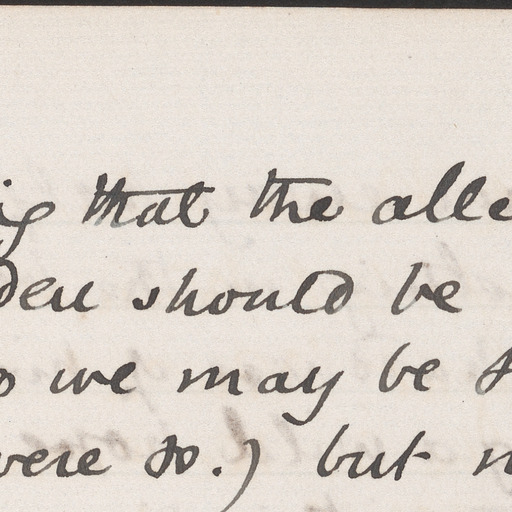 that the alle
den should be
we may be
were so.) but